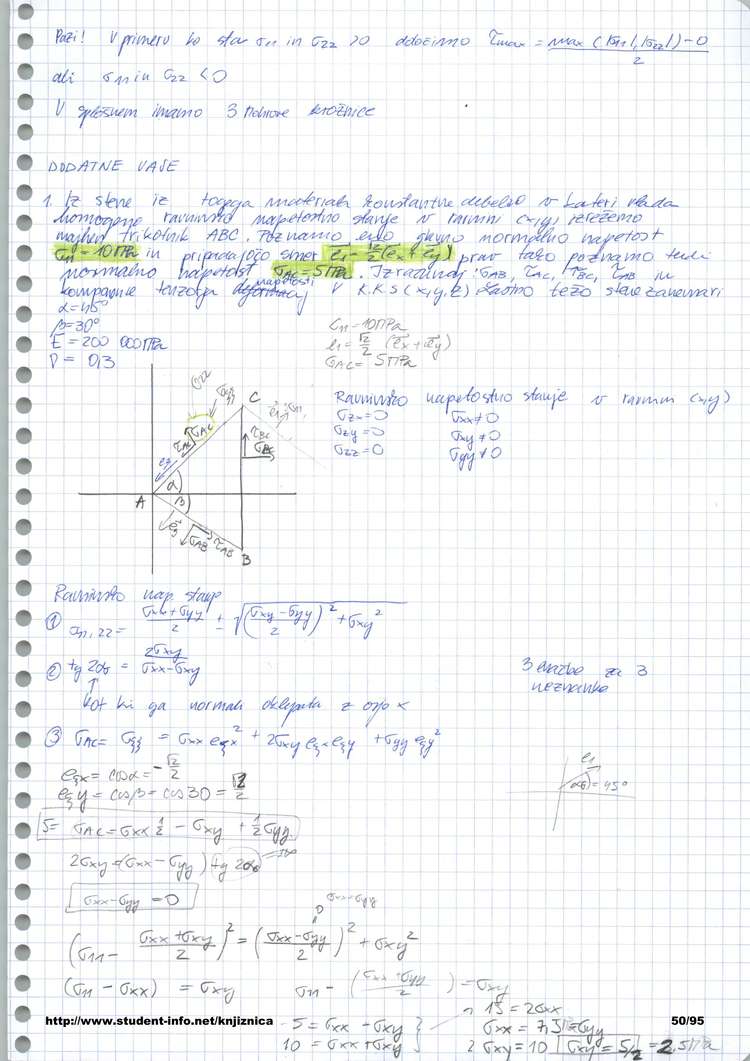 Pazi! V primeru ko sta σ11 in σ22 > 0 določimo τmax = max(|σ11|,|σ22|) - 0 / 2
ali σ11 in σ22 < 0
V splošnem imamo 3 Mohrove krožnice
DODATNE VAJE
1. Iz stene iz togega materiala konstantne debeline v kateri vlada
homogeno ravninsko napetostno stanje v ravnini (x,y) izrežemo
majhen trikotnik ABC. Poznamo eno glavno normalno napetost
σ11 = 10 MPa in pripadajočo smer e1 = √2/2 (ex + ey) prav tako poznamo tudi
normalno napetost σAC = 5 MPa. Izračunaj σAB, τAC, τBC, τAB in
komponente tenzorja napetosti v K.K.S (x,y,z) lastno težo stene zanemari
α=45°
β=30°
E = 200 000 MPa
ν = 0,3
σ11 = 10 MPa
e1 = √2/2 (ex + ey)
σAC = 5 MPa
Ravninsko napetostno stanje v ravnini (x,y)
σzx = 0 σxx ≠ 0
σzy = 0 σxy ≠ 0
σzz = 0 σyy ≠ 0
C
τAC σAC
τBC
σBC
α
A
β
σAB τAB
B
Ravninsko nap. stanje
① σ11,22 = σxx + σyy / 2 ± √((σxy - σyy / 2)² + σxy²)
② tg 2α = 2σxy / σxx - σxy
3 enačbe za 3
neznanke
kot ki ga normala oklepata z osjo x
③ σAC = σξξ = σxx eξx² + 2σxy eξx eξy + σyy eξy²
e1
= 45°
eξx = cosα = -√2/2
eξy = cosβ = cos 30 = √2/2
5 = σAC = σxx 1/2 - σxy + 1/2 σyy
2σxy = (σxx - σyy) tg 2α = ∞
σxx - σyy = 0
(σ11 - σxx + σxy / 2)² = (σxx - σyy / 2)² + σxy²
(σ11 - σxx) = σxy σ11 - (σxx + σyy / 2) = σxy
15 = 2σxx
σxx = 7,5 = σyy
5 = σxx - σxy
10 = σxx + σxy
2σxy = 10 σxy = 5/2 = 2,5 MPa
http://www.student-info.net/knjiznica 50/95